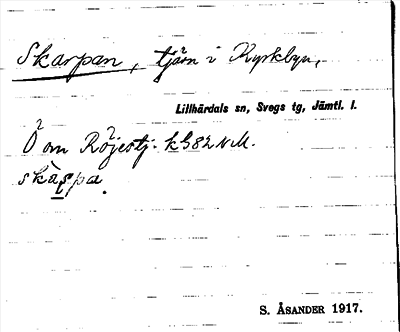 Skarpan, tjärn i Kyrkbyn,
Lillhärdals sn, Svegs tg, Jämtl. l.
Ö om Röjestj. kG82 NM.
skàspa.
S. ÅSANDER 1917.